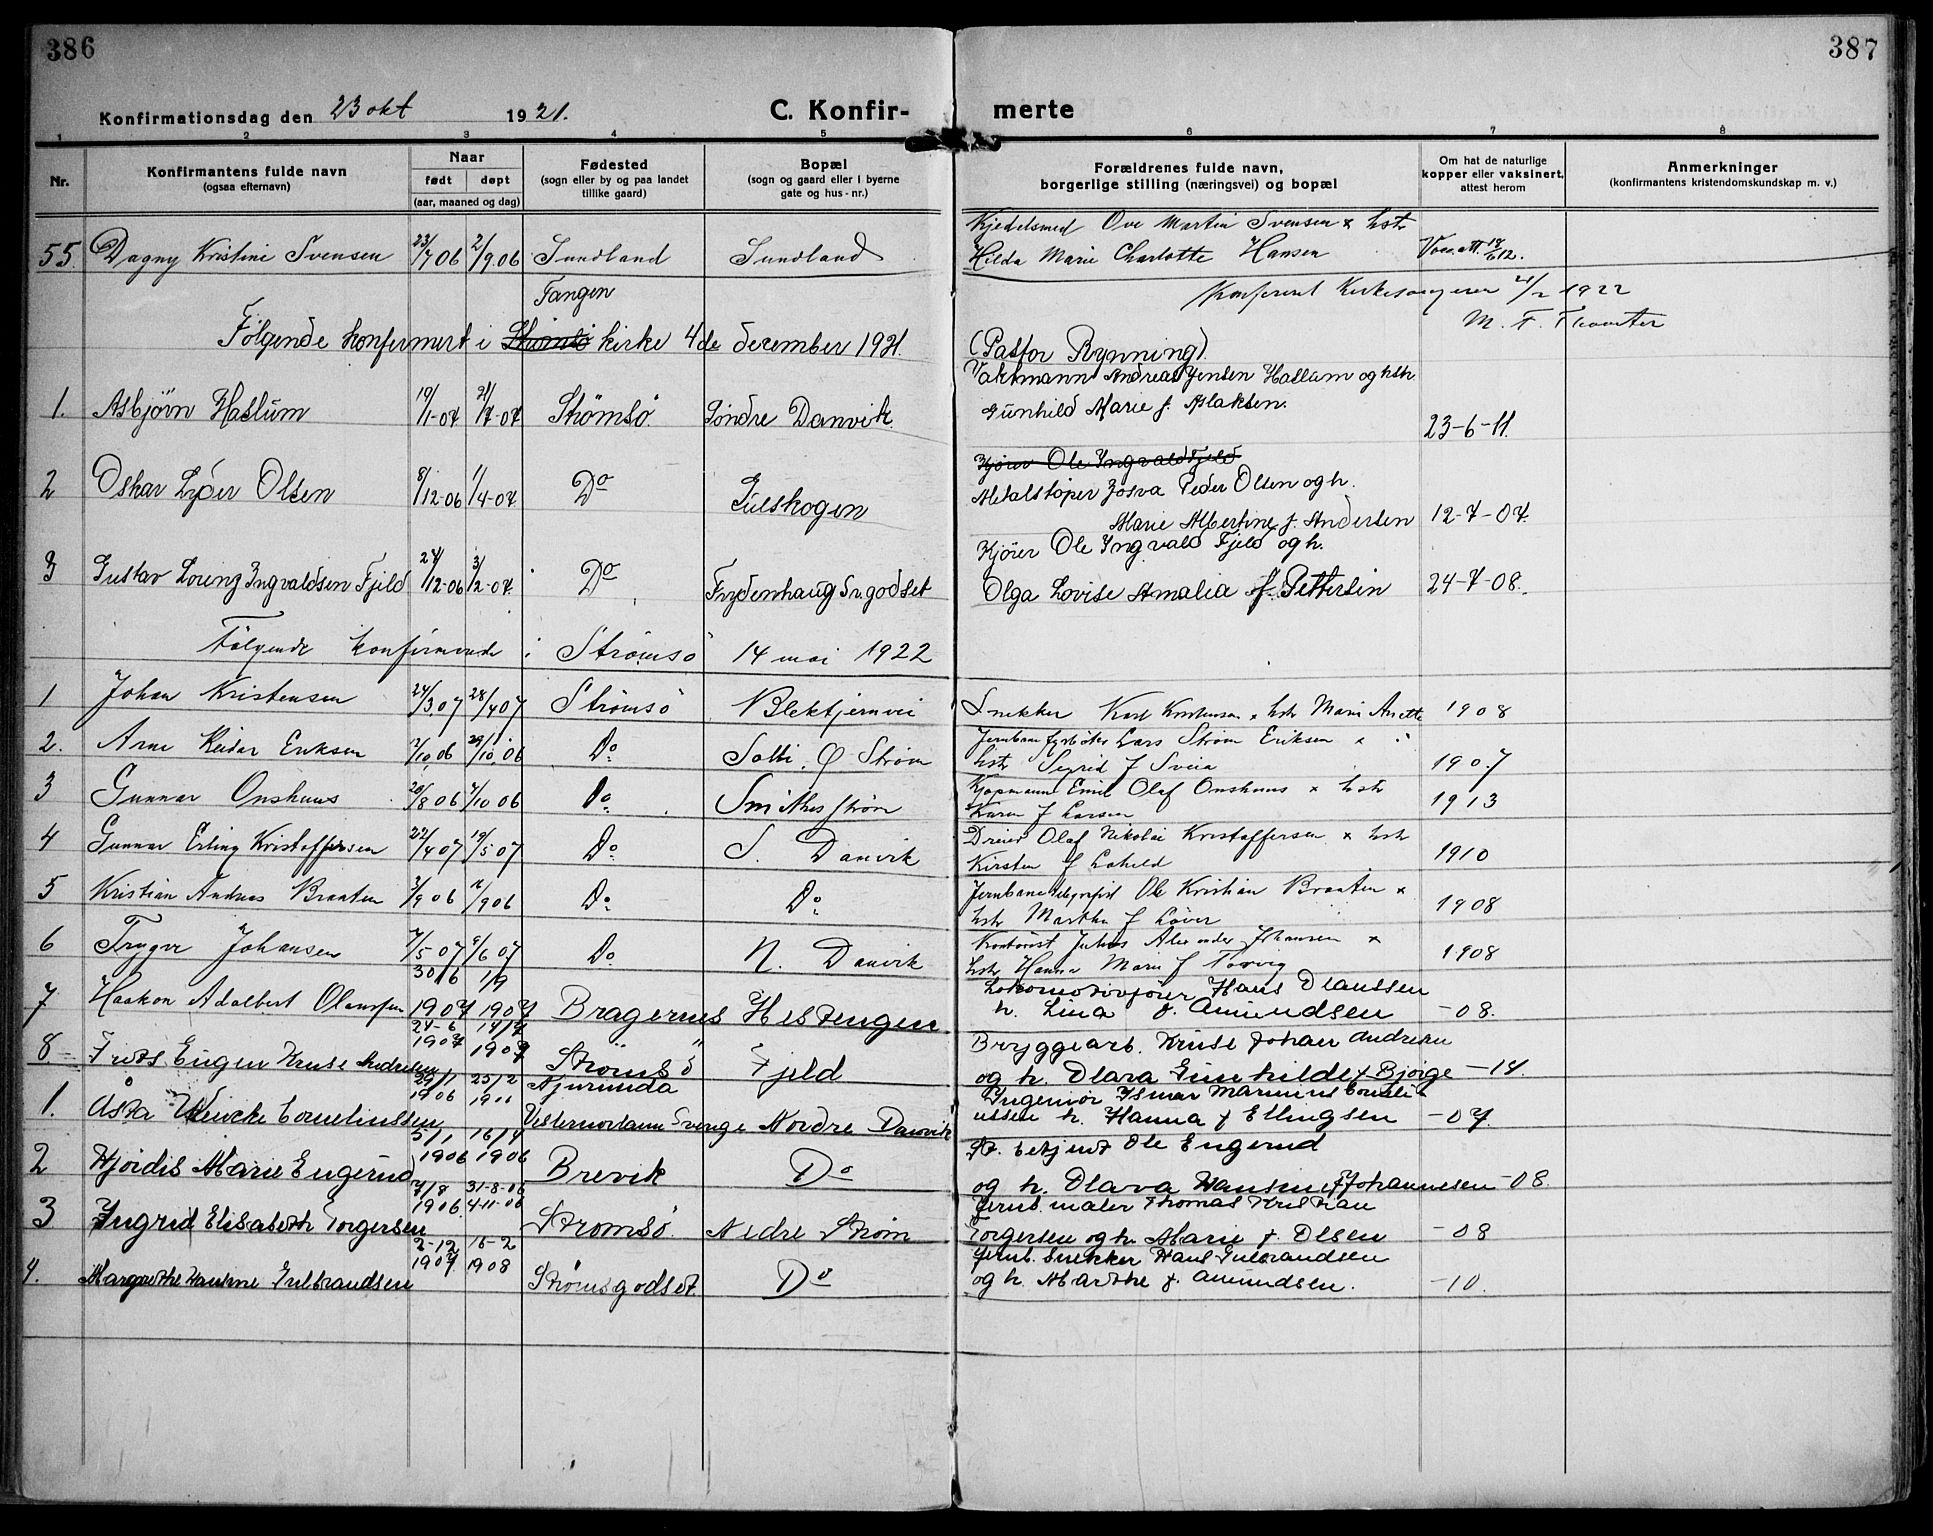 386
387
Konfirmationsdag den 23 okt 1921.
C. Konfir-
merte
1 2 3 4 5 6 7 8
Nr.
Konfirmantens fulde navn
(ogsaa efternavn)
Naar
født døpt
(aar, maaned og dag)
Fødested
(sogn eller by og paa landet
tillike gaard)
Bopæl
(sogn og gaard eller i byerne
gate og hus-nr.)
Forældrenes fulde navn,
borgerlige stilling (næringsvei) og bopæl
Om hat de naturlige
kopper eller vaksinert,
attest herom
Anmerkninger
(konfirmantens kristendomskundskap m. v.)
Kjedelsmed Ove Martin Svensen & hstr
55. Dagny Kristine Svensen 23/7 06 2/9.06 Sundland Sundland Hilda Marie Charlotte Hansen Vac.att.
Konferert Kirkesangeren 1922
M. F.
Tangen
Følgende konfirmert i Strømsø kirke 4de december 1921.
(Pastor Rynning).
Vaktmann Andreas Jensen Haslum og hstr.
1. Asbjørn Haslum 19/1-07 21/7-07 Strømsø. Søndre Danvik. Gunhild Marie f. Aslaksen. 23-6-11.
Kjører Ole Ingvald Fjeld
Metalstøper Josva Peder Olsen og h.
2 Oskar Lyder Olsen 8/12-06 1/4-07 Do Gulskogen Marie Albertine f. Andersen 12-7-07.
Kjører Ole Ingvald Fjeld og h.
3 Gustav Loreng Ingvaldsen Fjeld 27/12-06 3/2-07. Do Frydenhaug Sr.godset Olga Lovise Amalia f. Pettersen 24-7-08.
Følgende konfirmerede i Strømsø 14 mai 1922
1 Johan Kristensen 24/3.07 28/4 07 Strømsø Blektjernvei Snekker Karl Kristensen & hstr Marie Anette 1908
Jernbane fyrbøter Lars Strøm Eriksen &
2. Arne Reidar Eriksen 2/10.06 29/10.06 Do. Solli, Ø Strøm hstr Sigrid f Sveia 1907
Kjøpmann Emil Olaf Onshuus & hstr
3 Gunnar Onshuus 20/8 06 7/10 06 Do. Smithestrøm Karen f Larsen 1913
Dreier Olaf Nikolai Kristoffersen & hstr
4 Gunnar Erling Kristoffersen 22/4 07 19/5 07 Do. S. Danvik Kirsten f 1910
Jernbanetelegrafist Ole Kristian Braaten &
5 Kristian Andreas Braaten 3/9 06 /9 06 Do. Do. hstr Martha f Løver 1908
Kontorist Julius Alexander Johansen &
6 Trygve Johansen 7/5 07 9/6 07 Do. N. Danvik hstr Hanna Marie f 1908
30/6 1/9
Lokomotivfører Hans Olaussen
7 Haakon Adalbert Olaussen 1907 1907 Bragernes Hestengen h. Lina f. Amundsen -08.
24-6 14/7
1907 1907
Bryggearb. Kruse Johan Andresen
8 Frits Eugen Kruse Andresen Strømsø Fjeld og h. Olara Gunhilde f Bjørge -14.
29/1 25/2
1906 1911
Njurunda
Ingeniør Ismar Marinius Corneli-
1. Åsta Wencke Corneliussen Vesternorlann Sverige Nordre Danvik ussen h. Hanna f Ellingsen -07.
5/1 16/4
1906 1906
St. betjent Ole Engerud
2 Hjørdis Marie Engerud Brevik Do og h. Olava Hansine f Johannesen -08.
7/8 31-8-06
1906. 4-11-06
Jernb. maler Thomas Kristian
3 Ingrid Elisabeth Torgersen Strømsø. Nedre Strøm Torgersen og h. Marie f. Olsen -08
2-12 16-2
1907. 1908
Jernb. Snekker Hans Gulbrandsen
4. Margrethe Hansine Gulbrandsen Strømsgodset. Do og h. Marthe f. Amundsen. -10.